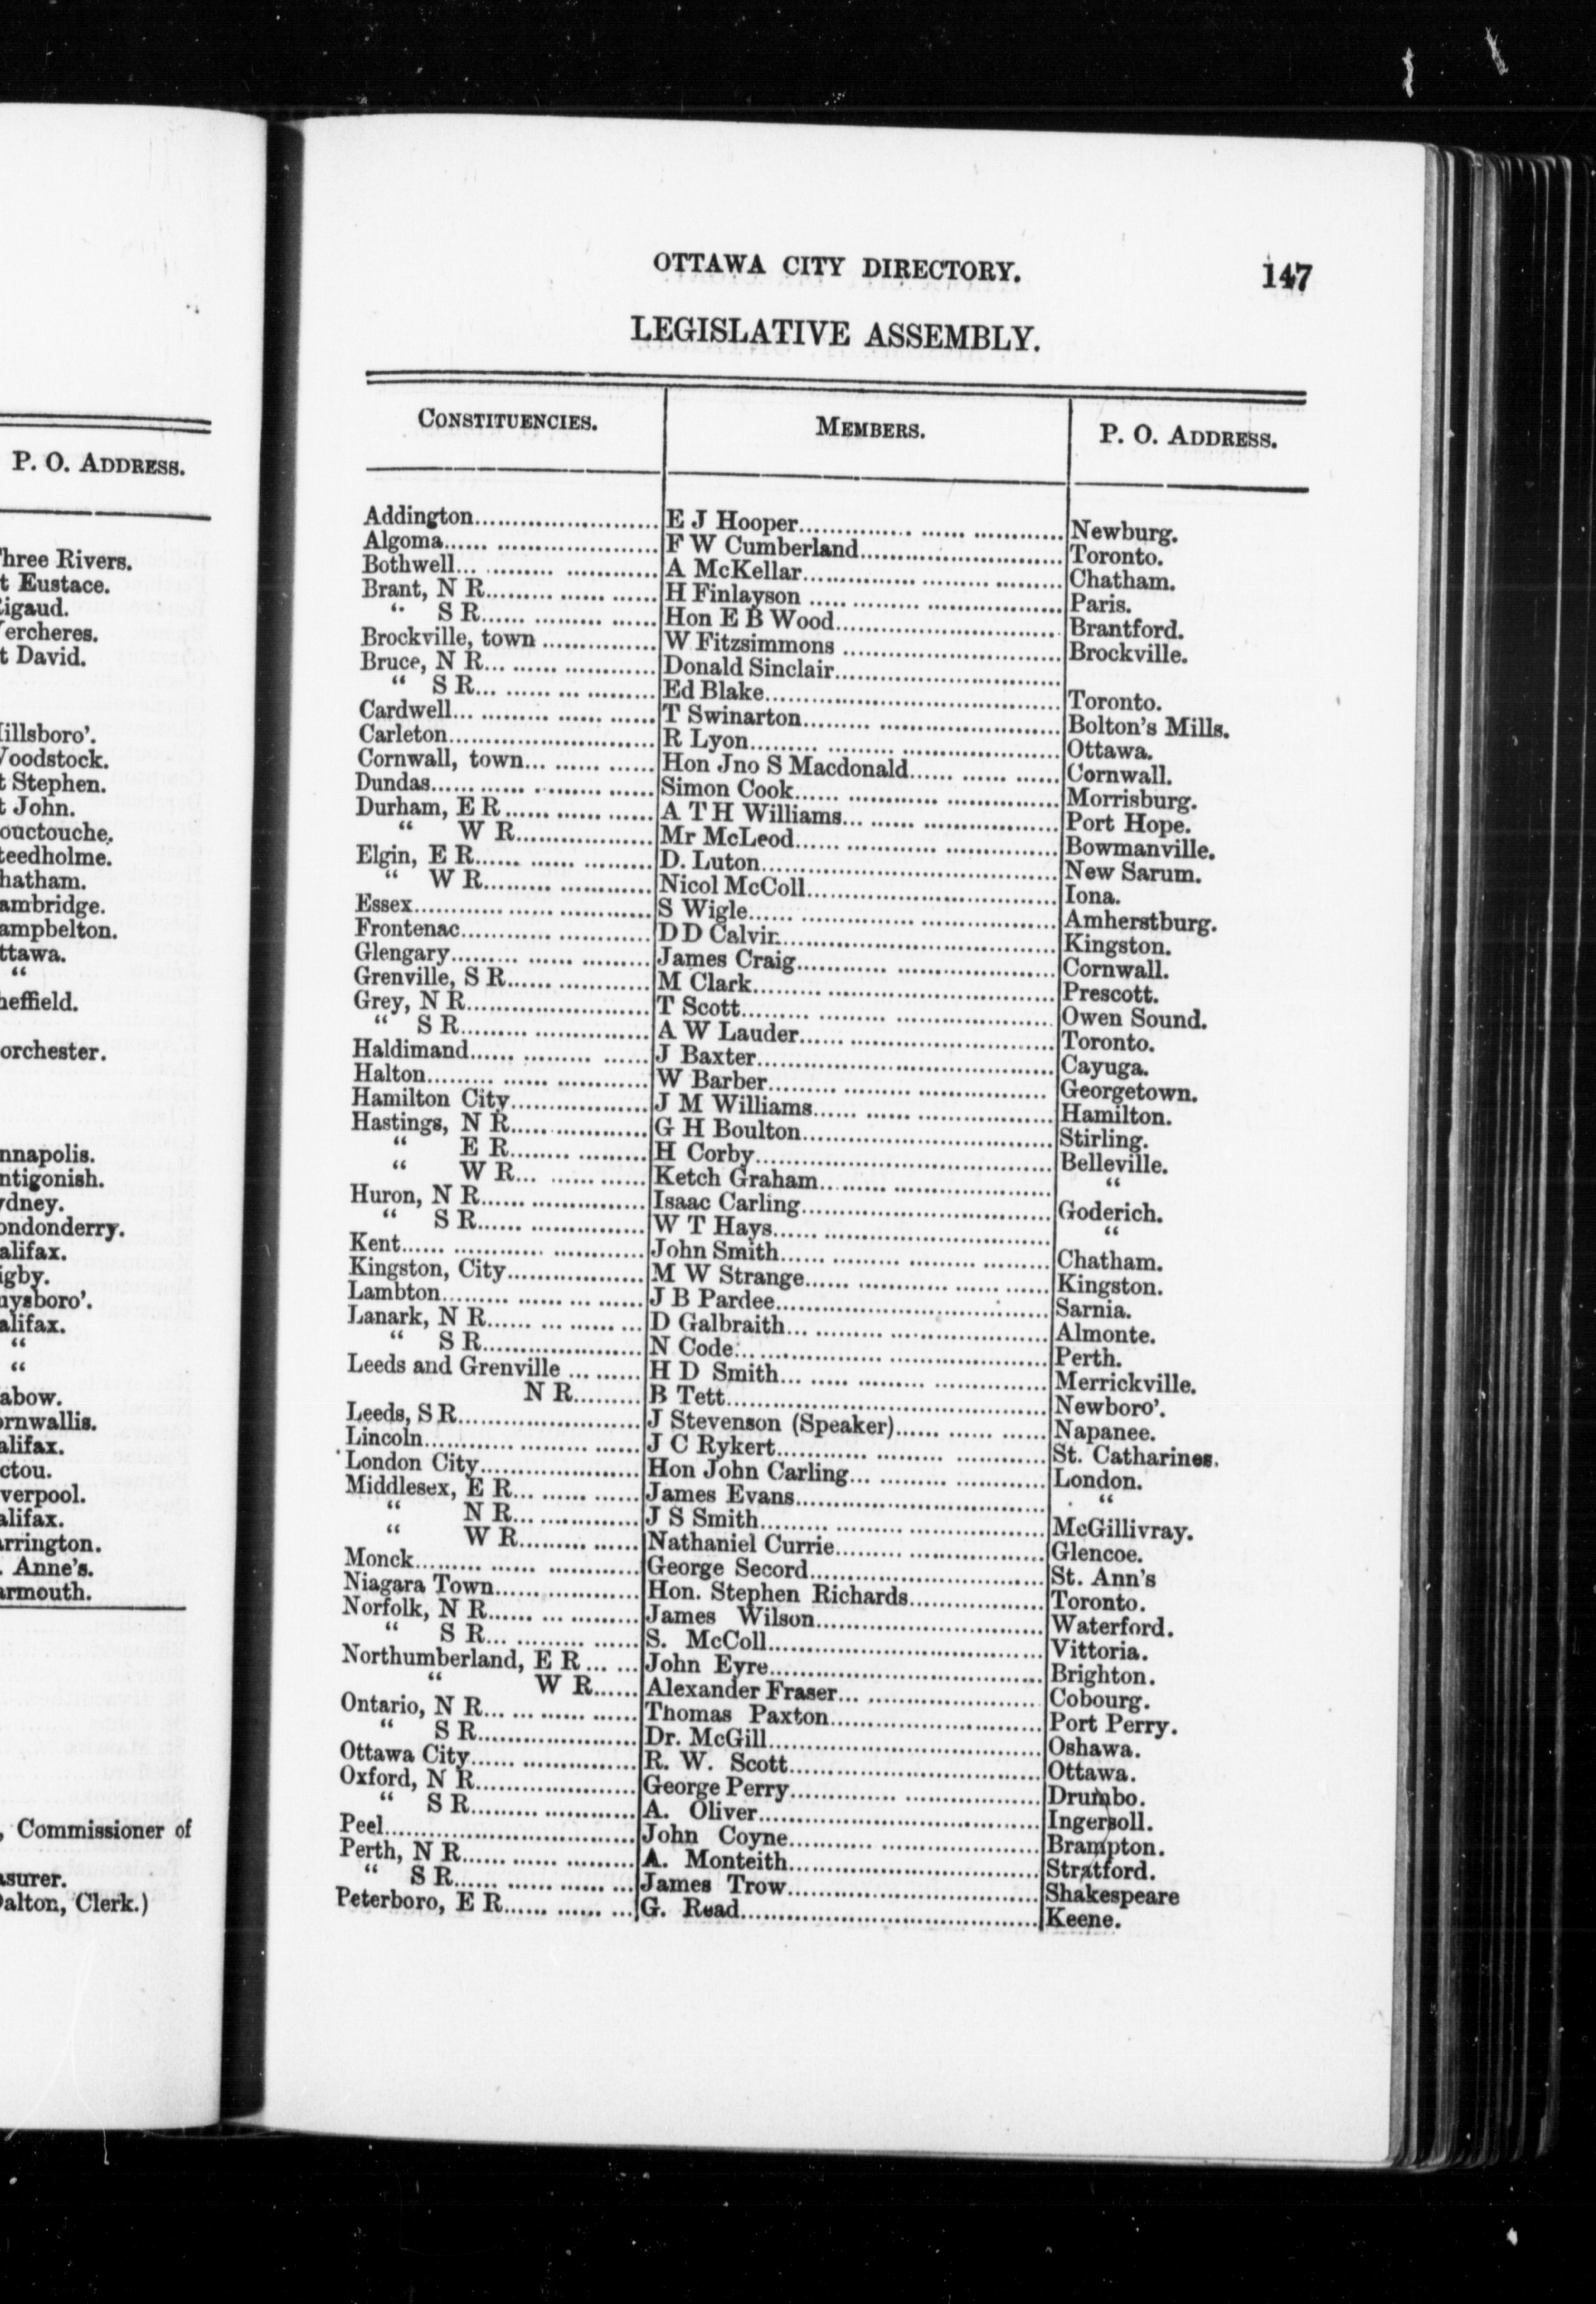 P. O. ADDRESS.
hree Rivers.
t Eustace.
igaud.
ercheres.
t David.
illsboro'.
oodstock.
t Stephen.
t John.
ouctouche.
teedholme.
hatham.
ambridge.
ampbelton.
ttawa.
“
heffield.
orchester.
nnapolis.
ntigonish.
ydney.
ondonderry.
alifax.
igby.
uysboro'.
alifax.
“
“
abow.
ornwallis.
alifax.
ctou.
verpool.
alifax.
arrington.
. Anne's.
armouth.
, Commissioner of
asurer.
alton, Clerk.)
OTTAWA CITY DIRECTORY. 147
LEGISLATIVE ASSEMBLY.
CONSTITUENCIES. MEMBERS. P. O. ADDRESS.
Addington E J Hooper Newburg.
Algoma F W Cumberland Toronto.
Bothwell A McKellar Chatham.
Brant, N R H Finlayson Paris.
“ S R Hon E B Wood Brantford.
Brockville, town W Fitzsimmons Brockville.
Bruce, N R Donald Sinclair
“ S R Ed Blake Toronto.
Cardwell T Swinarton Bolton's Mills.
Carleton R Lyon Ottawa.
Cornwall, town Hon Jno S Macdonald Cornwall.
Dundas Simon Cook Morrisburg.
Durham, E R A T H Williams Port Hope.
“ W R Mr McLeod Bowmanville.
Elgin, E R D. Luton New Sarum.
“ W R Nicol McColl Iona.
Essex S Wigle Amherstburg.
Frontenac D D Calvin Kingston.
Glengary James Craig Cornwall.
Grenville, S R M Clark Prescott.
Grey, N R T Scott Owen Sound.
“ S R A W Lauder Toronto.
Haldimand J Baxter Cayuga.
Halton W Barber Georgetown.
Hamilton City J M Williams Hamilton.
Hastings, N R G H Boulton Stirling.
“ E R H Corby Belleville.
“ W R Ketch Graham “
Huron, N R Isaac Carling Goderich.
“ S R W T Hays “
Kent John Smith Chatham.
Kingston, City M W Strange Kingston.
Lambton J B Pardee Sarnia.
Lanark, N R D Galbraith Almonte.
“ S R N Code Perth.
Leeds and Grenville H D Smith Merrickville.
N R B Tett Newboro'.
Leeds, S R J Stevenson (Speaker) Napanee.
Lincoln J C Rykert St. Catharines.
London City Hon John Carling London.
Middlesex, E R James Evans “
“ N R J S Smith McGillivray.
“ W R Nathaniel Currie Glencoe.
Monck George Secord St. Ann's
Niagara Town Hon. Stephen Richards Toronto.
Norfolk, N R James Wilson Waterford.
“ S R S. McColl Vittoria.
Northumberland, E R John Eyre Brighton.
“ W R Alexander Fraser Cobourg.
Ontario, N R Thomas Paxton Port Perry.
“ S R Dr. McGill Oshawa.
Ottawa City R. W. Scott Ottawa.
Oxford, N R George Perry Drumbo.
“ S R A. Oliver Ingersoll.
Peel John Coyne Brampton.
Perth, N R A. Monteith Stratford.
“ S R James Trow Shakespeare
Peterboro, E R G. Read Keene.